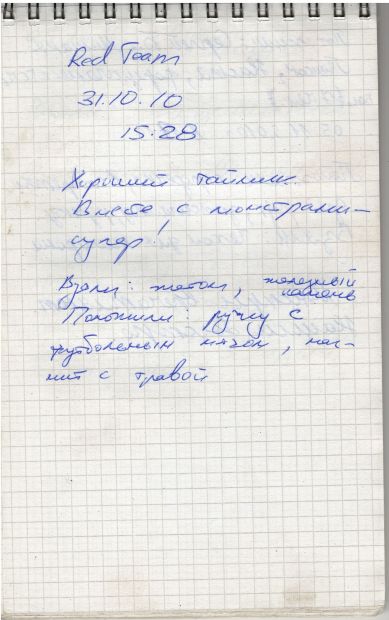 Red Team
31.10.10
15:28
Хороший тайник.
Вместе с монстрами –
супер!
Взяли: жетон, железный
камень
Положили: ручку с
футбольным мячом, маг-
нит с травой